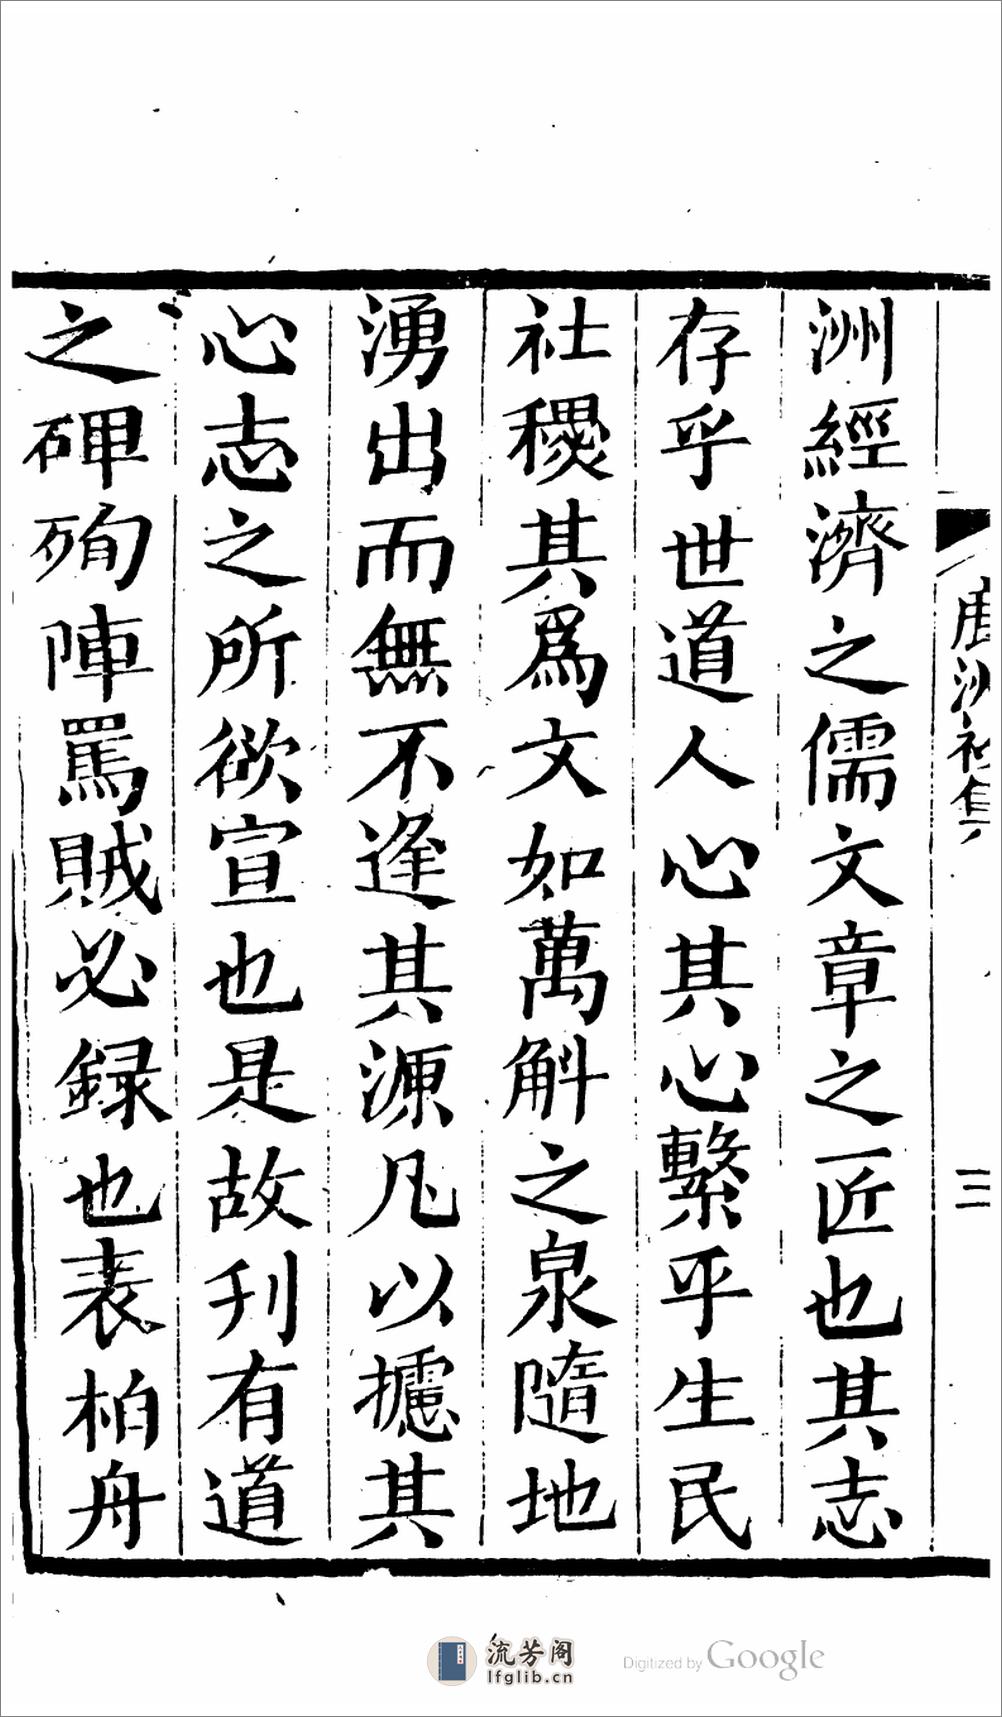 洲經濟之儒文章之匠也其志
存乎世道人心其心繫乎生民
社稷其爲文如萬斛之泉隨地
湧出而無不逢其源凡以攄其
心志之所欲宣也是故刋有道
之碑殉陣罵賊必録也表柏舟
三
流芳阁
lfglib.cn
Digitized by Google